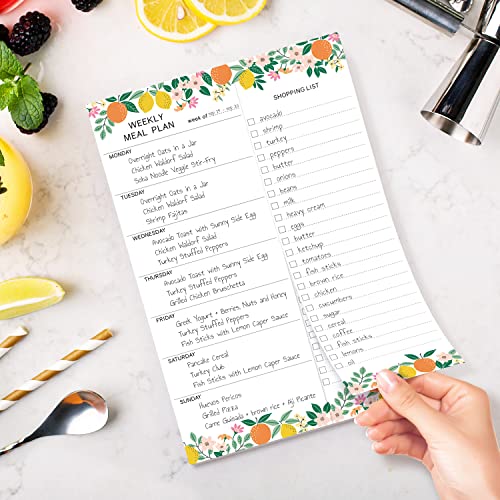 WEEKLY
MEAL PLAN
week of
MONDAY
Overnight Oats in a Jar
Chicken Waldorf Salad
Soba Noodle Veggie Stir-Fry
TUESDAY
Overnight Oats in a Jar
Chicken Waldorf Salad
Shrimp Fajitas
WEDNESDAY
Avocado Toast with Sunny Side Egg
Chicken Waldorf Salad
Turkey Stuffed Peppers
THURSDAY
Avocado Toast with Sunny Side Egg
Turkey Stuffed Peppers
Grilled Chicken Bruschetta
FRIDAY
Greek Yogurt + Berries, Nuts and Honey
Turkey Stuffed Peppers
Fish Sticks with Lemon Caper Sauce
SATURDAY
Pancake Cereal
Turkey Club
Fish Sticks with Lemon Caper Sauce
SUNDAY
Huevos Pericos
Grilled Pizza
Carne Guisada + brown rice + Aji Picante
SHOPPING LIST
avocado
shrimp
turkey
peppers
butter
onions
beans
milk
heavy cream
eggs
butter
ketchup
tomatoes
fish sticks
brown rice
chicken
cucumbers
sugar
cereal
coffee
fish sticks
lemons
oil